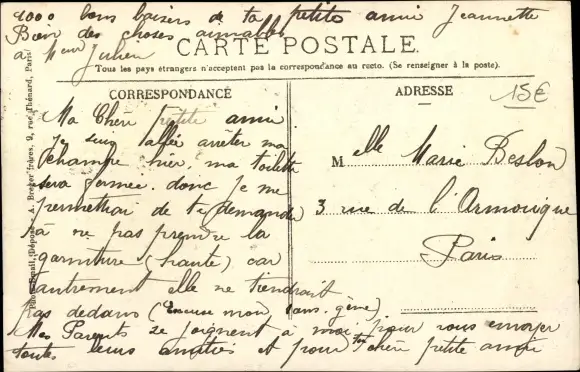 1000 bons baisers de ta petite amie Jeannette
Bien des choses aimables
a Mme Julien
CARTE POSTALE
Tous les pays étrangers n'acceptent pas la correspondance au recto. (Se renseigner à la poste).
CORRESPONDANCE
Ma Chère petite amie
je suis allée arrêter ma
chambre hier, ma toilette
sera fermée. donc je me
permettrai de te demander
à ne pas prendre la
garniture (haute) car
autrement elle ne tiendrait
pas dedans (Excuse mon sans-gêne)
Mes Parents se joignent à moi pour vous envoyer
toutes leurs amitiés et pour toi chère petite amie
ADRESSE
15€
Melle Marie Beslon
3 rue de l'Armorique
Paris
A. Breger frères, 9, rue Thénard, Paris